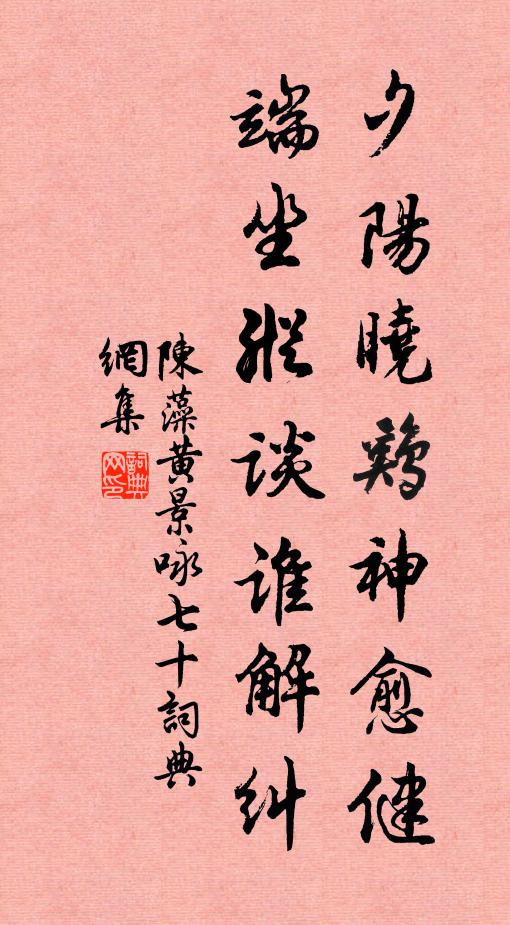 夕陽曉鷄神愈健
端坐縱談誰解糾
陳藻黄景咏七十詞典
網集
詞典網印